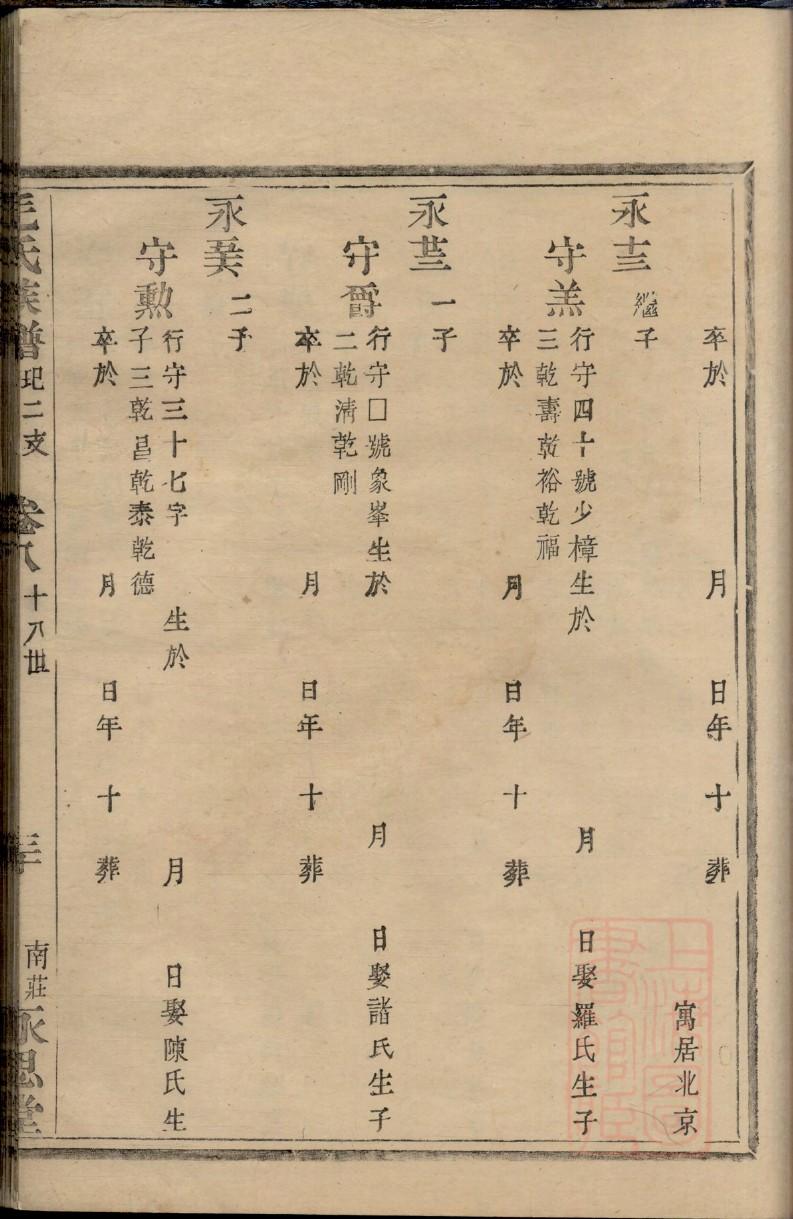 卒於 月 日年 十 葬
寓居北京
永圭 繼子
守羔 行守四十號少樟生於 月 日娶羅氏生子
三乾壽乾裕乾福
卒於 月 日年 十 葬
永 一子
守爵 行守囗號象峯生於 月 日娶諸氏生子
二乾清乾剛
卒於 月 日年 十 葬
永 二子
守勲 行守三十七字 生於 月 日娶陳氏生
子三乾昌乾泰乾德
卒於 月 日年 十 葬
毛氏族譜 玘二支 卷八 十八世 南莊永思堂